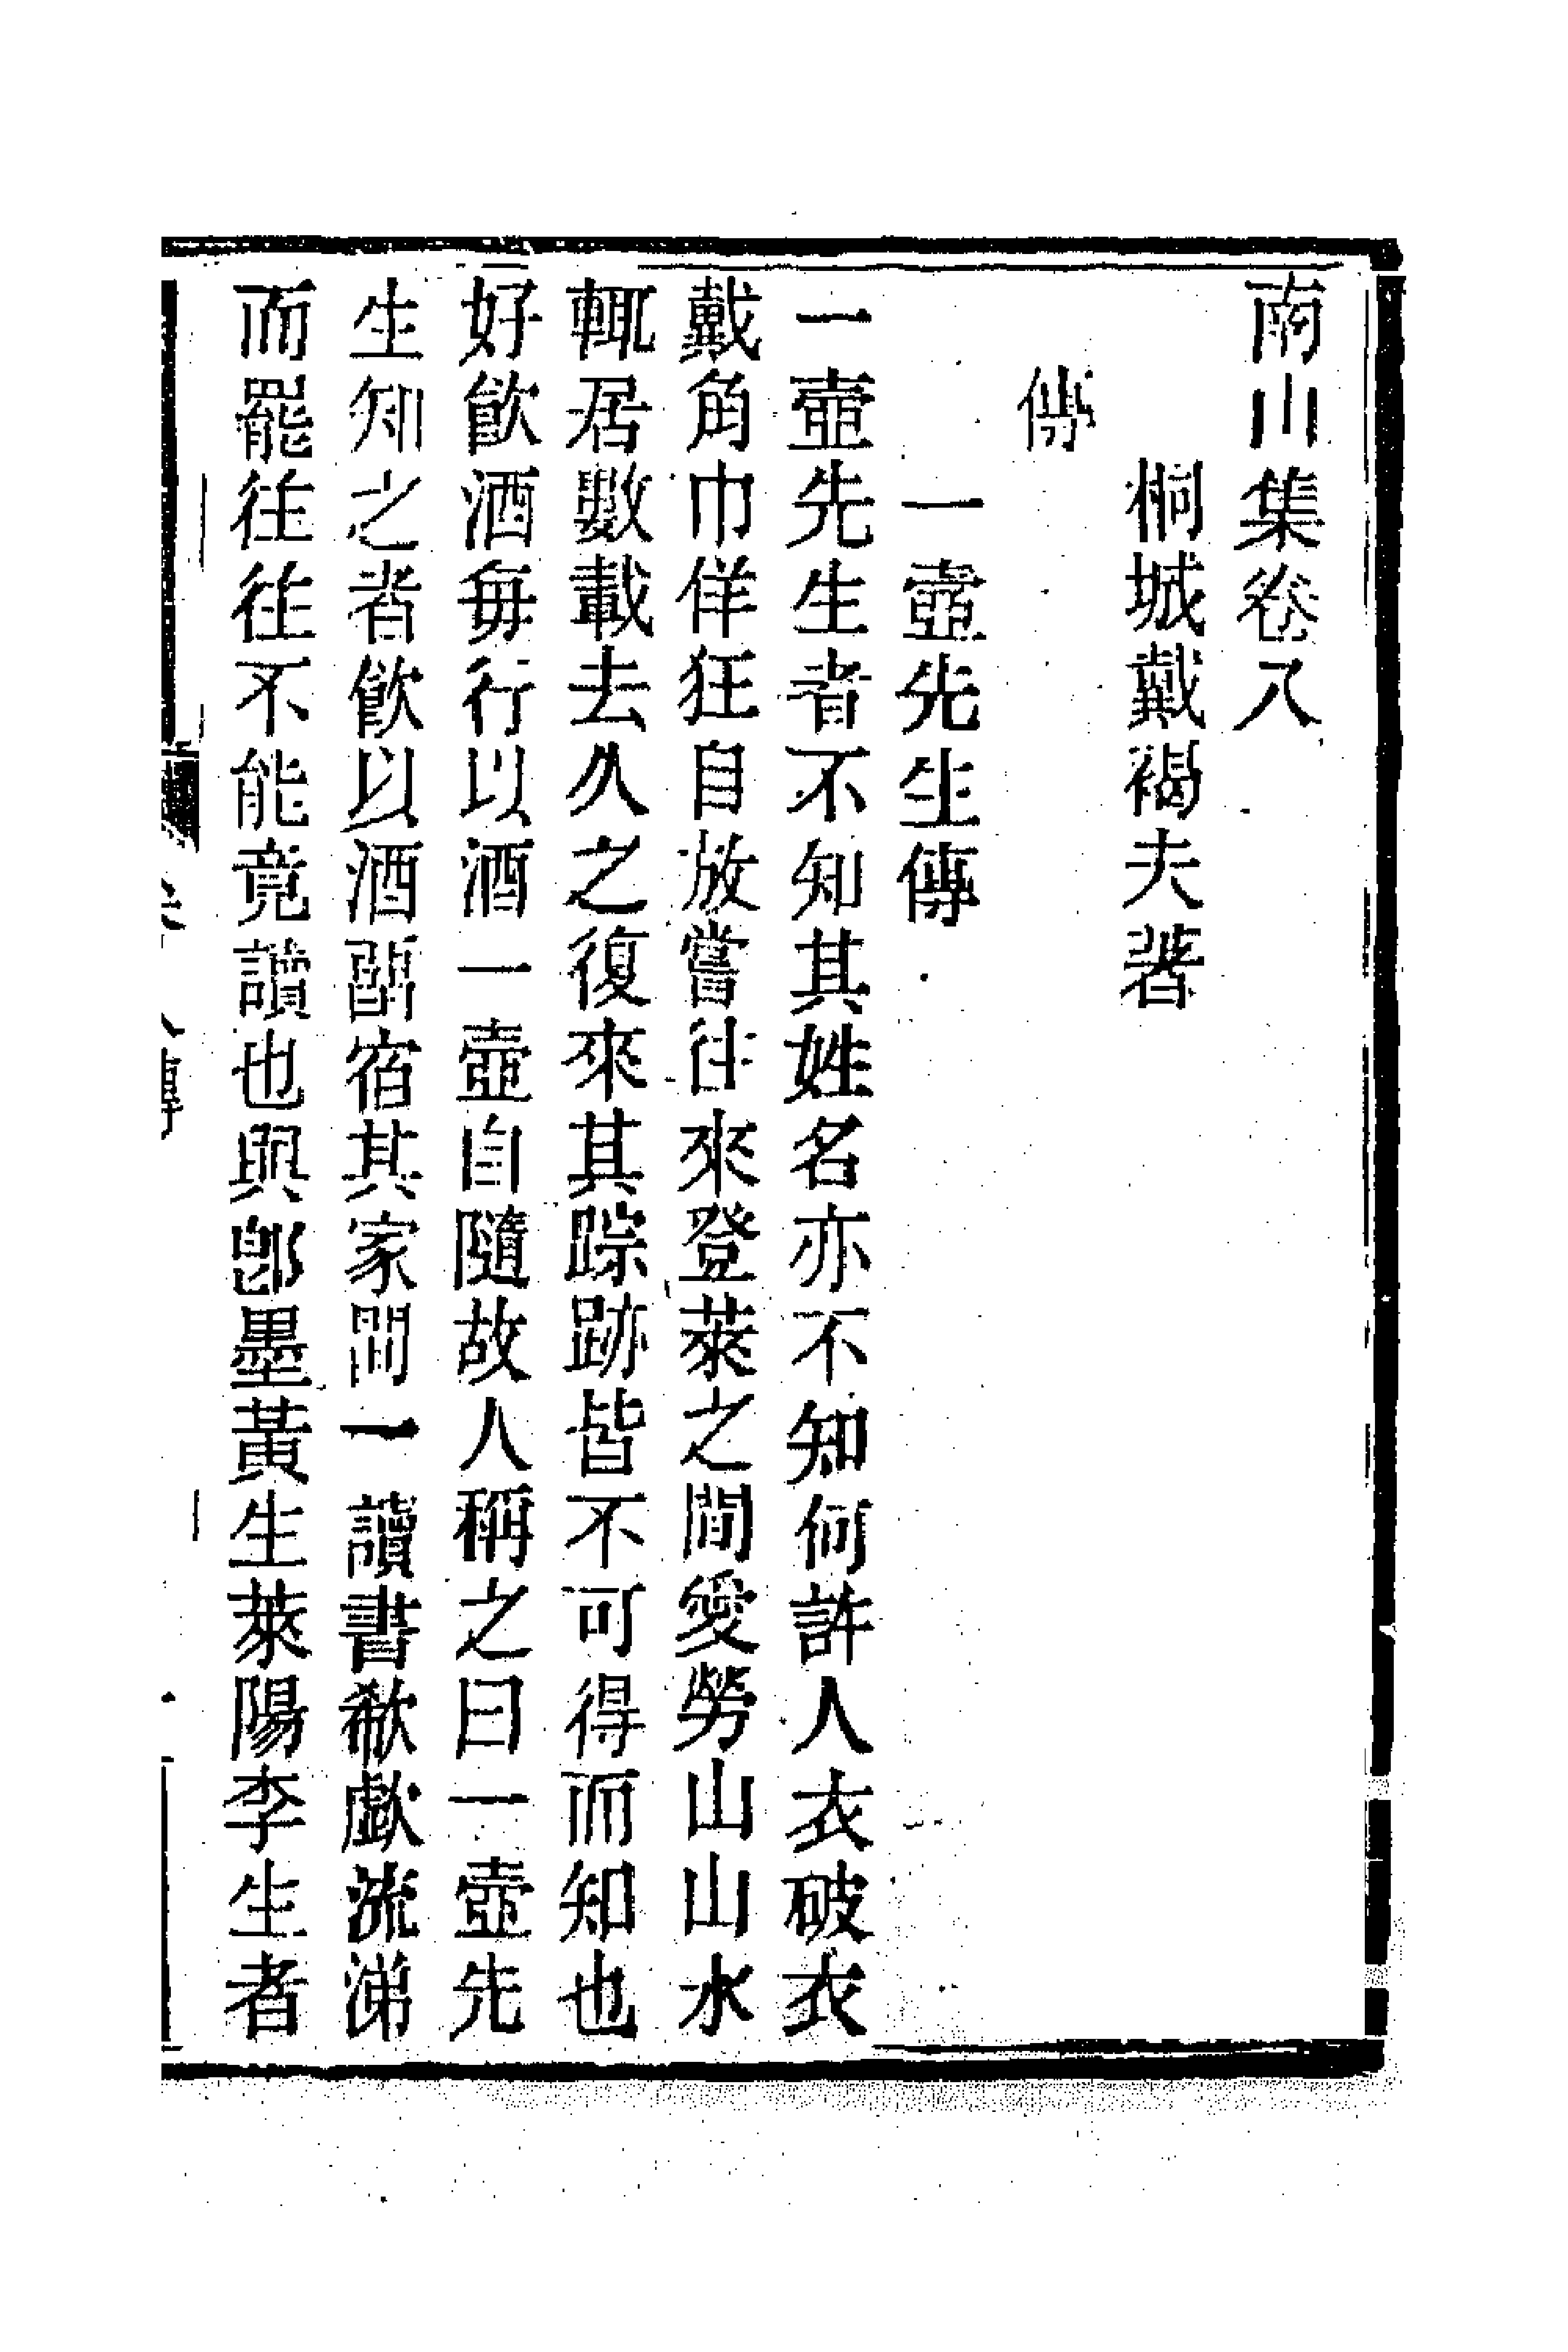 南山集卷八
桐城戴褐夫著
傳
一壺先生傳
一壺先生者不知其姓名亦不知何許人衣破衣
戴角巾佯狂自放嘗往來登萊之間愛勞山山水
輒居數載去久之復來其踪跡皆不可得而知也
好飲酒每行以酒一壺自隨故人稱之曰一壺先
生知之者飲以酒留宿其家間一讀書欷歔流涕
而罷往往不能竟讀也與卽墨黃生萊陽李生者